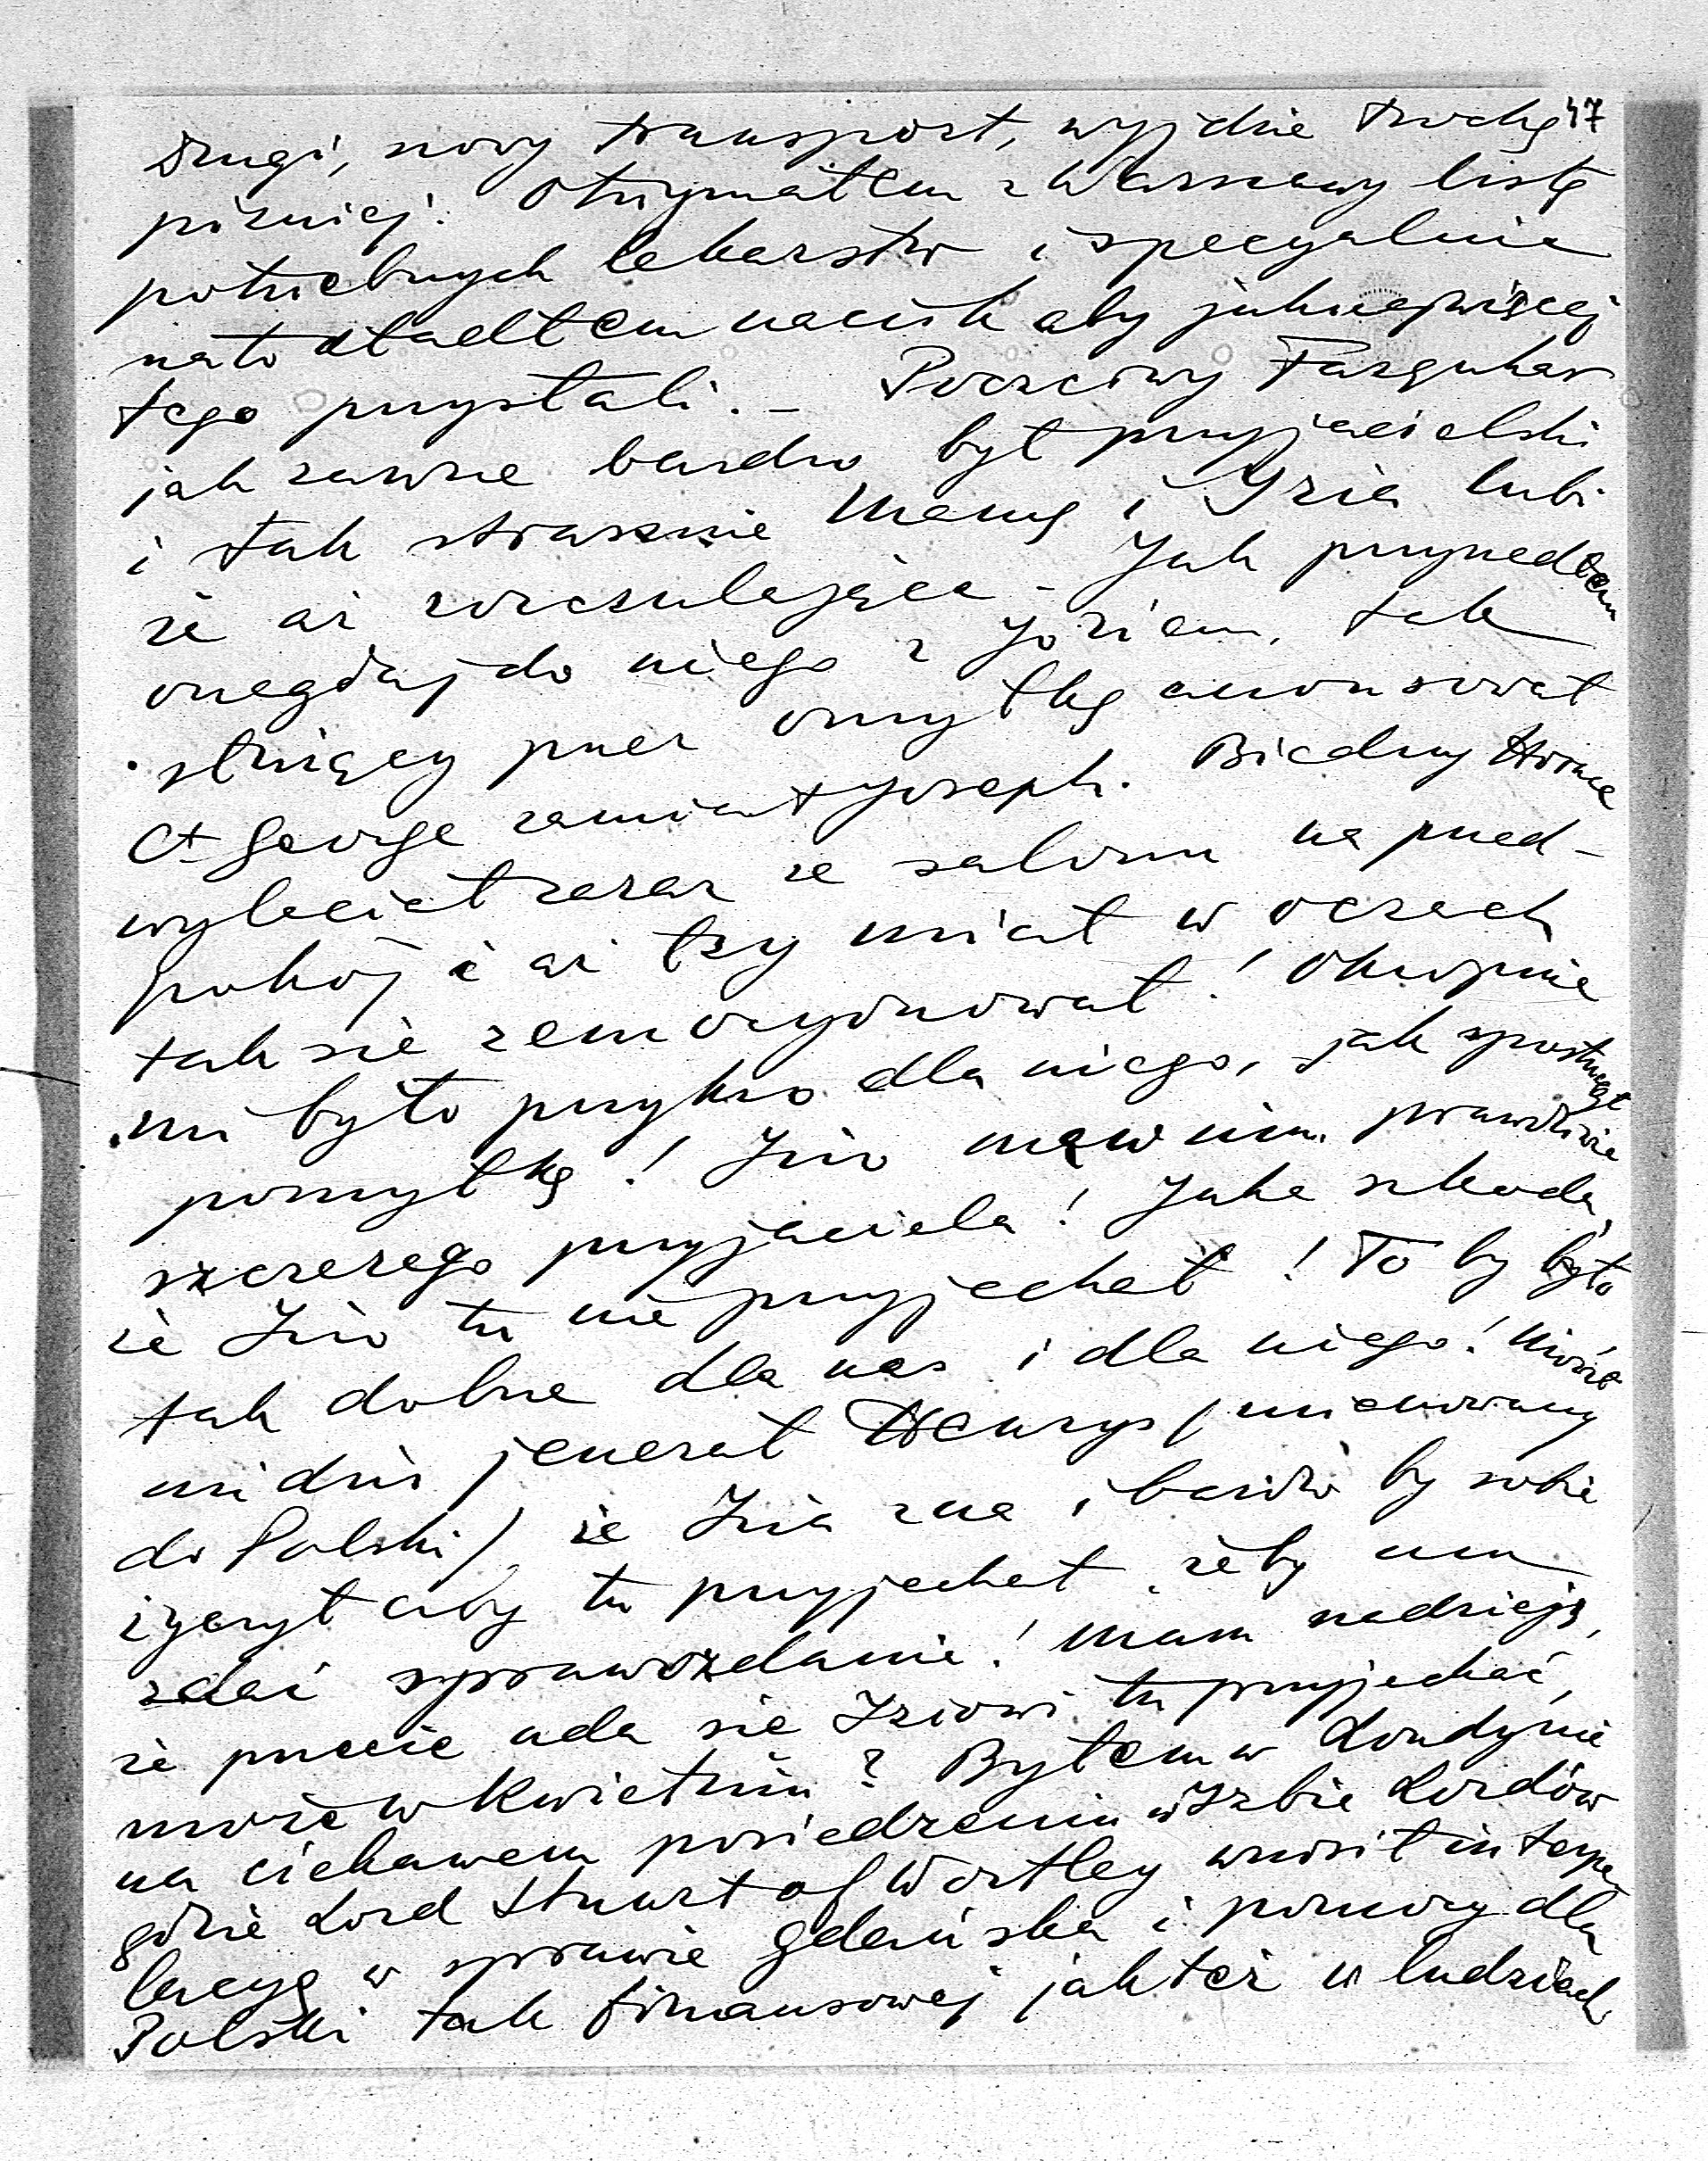 47
Drugi, nowy transport, wyjdzie trochę
później. Otrzymałem z Warszawy listę
potrzebnych lekarstw i specyalnie
na to kładłem nacisk aby jaknajwięcej
tego przysłali. – Poczciwy Farquhar
jak zawsze bardzo był przyjacielski
i tak strasznie Mamę i Izia lubi
że aż rozczulające – Jak przyszedłem
onegdaj do niego z Joziem, tak
służący przez omyłkę anonsował
Ct George zamiast Joseph. Biedny Horace
wyleciał zaraz ze salonu na przed-
pokój i aż łzy miał w oczach
tak się zemocyonował! Okropnie
mi było przykro dla niego, jak spostrzegł
pomyłkę! Izio ma w nim prawdziwie
szczerego przyjaciela! Jaka szkoda,
że Izio tu nie przyjechał! To by było
tak dobrze dla nas i dla niego! Mówił
mi dziś jenerał Henrys (mianowany
do Polski) że Izia zna i bardzo by sobie
życzył aby tu przyjechał, żeby mu
zdać sprawozdanie! Mam nadzieję,
że przecie uda się Iziowi tu przyjechać,
może w Kwietniu? Byłem w Londynie
na ciekawem posiedzeniu w Izbie Lordów
gdzie Lord Stuart of Wortley wnosił interpe
lacyę w sprawie Gdańska i pomocy dla
Polski tak finansowej jak też w ludziach